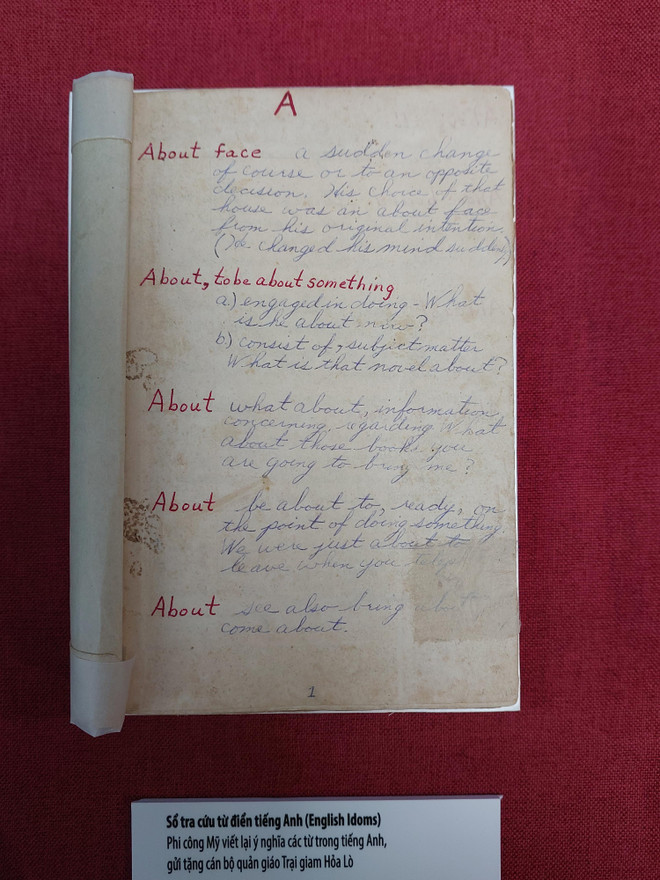 A
About face a sudden change
of course or to an opposite
decision. His choice of that
house was an about face
from his original intention.
(He changed his mind suddenly)
About, to be about something
a) engaged in doing - What
is he about now?
b) consist of, subject matter
What is that novel about?
About what about, information,
concerning, regarding What
about those books you
are going to bring me?
About be about to, ready, on
the point of doing something.
We were just about to
leave when you
About see also bring about
come about.
1
Sổ tra cứu từ điển tiếng Anh (English Idoms)
Phi công Mỹ viết lại ý nghĩa các từ trong tiếng Anh,
gửi tặng cán bộ quản giáo Trại giam Hỏa Lò